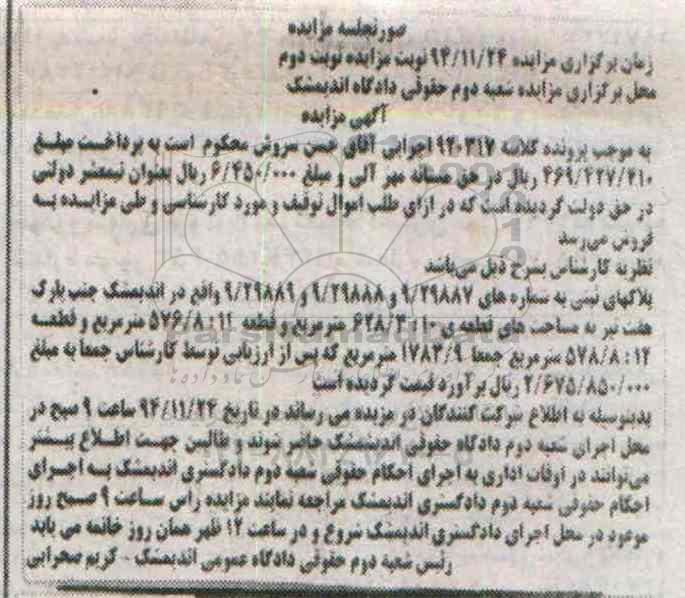 صورتجلسه مزایده
زمان برگزاری مزایده ۹۴/۱۱/۲۴ نوبت مزایده نوبت دوم
محل برگزاری مزایده شعبه دوم حقوقی دادگاه اندیمشک
آگهی مزایده
به موجب پرونده کلاسه ۹۴۰۳۱۷ اجرایی آقای حسن سروش محکوم است به پرداخت مبلغ
۴۶۹/۲۲۷/۲۱۰ ریال در حق مستانه مهر آلی و مبلغ ۶/۴۵۰/۰۰۰ ریال بعنوان نیمعشر دولتی
در حق دولت گردیده است که در ازای طلب اموال توقیف و مورد کارشناسی و طی مزایده به
فروش می‌رسد
نظریه کارشناس بشرح ذیل می‌باشد
پلاکهای ثبتی به شماره های ۹/۲۹۸۸۷ و ۹/۲۹۸۸۸ و ۹/۲۹۸۸۹ واقع در اندیمشک جنب پارک
هفت تیر به مساحت های قطعه ی ۱۰: ۶۲۸/۳ مترمربع و قطعه ۱۱: ۵۷۶/۸ مترمربع و قطعه
۱۲: ۵۷۸/۸ مترمربع جمعا ۱۷۸۳/۹ مترمربع که پس از ارزیابی توسط کارشناس جمعا به مبلغ
۲/۶۷۵/۸۵۰/۰۰۰ ریال برآورد قیمت گردیده است
بدینوسیله به اطلاع شرکت کنندگان در مزیده می رساند در تاریخ ۹۴/۱۱/۲۴ ساعت ۹ صبح در
محل اجرای شعبه دوم دادگاه حقوقی اندیمشک حاضر شوند و طالبین جهت اطلاع بیشتر
می‌توانند در اوقات اداری به اجرای احکام حقوقی شعبه دوم دادگستری اندیمشک به اجرای
احکام حقوقی شعبه دوم دادگستری اندیمشک مراجعه نمایند مزایده راس ساعت ۹ صبح روز
موعود در محل اجرای دادگستری اندیمشک شروع و در ساعت ۱۲ ظهر همان روز خاتمه می یابد
رئیس شعبه دوم حقوقی دادگاه عمومی اندیمشک - کریم صحرایی